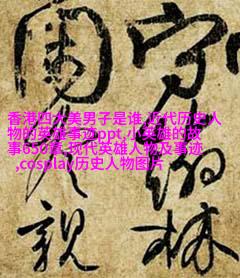 香港四大美男子是谁,近代历史人
物的英雄事迹ppt,小英雄的故
事650字,现代英雄人物及事迹
,cosplay历史人物图片
守林
親